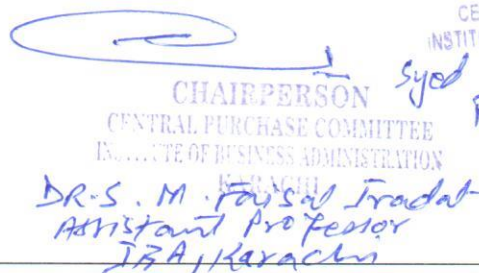 CE
INSTIT
Syed
CHAIRPERSON
CENTRAL PURCHASE COMMITTEE
OF BUSINESS ADMINISTRATION
KARACHI
DR. S. M. Faisal Iradat
Assistant Professor
IBA, Karachi